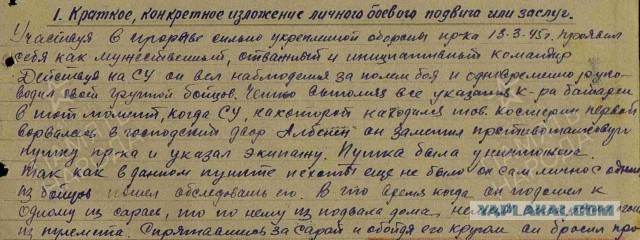 1. Краткое, конкретное изложение личного боевого подвига или заслуг.
Участвуя в прорыве сильно укрепленной обороны пр-ка 13-3-45г. проявил
себя как мужественный, отважный и инициативный командир
Действуя на СУ он вел наблюдения за полем боя и одновременно руко-
водил своей группой бойцов. Четко выполняя все указания к-ра батареи
в тот момент, когда СУ, на которой находился тов. Костерин первой
ворвалась в господский двор он заметил противотанковую
пушку пр-ка и указал экипажу. Пушка была уничтожена.
Так как в данном пункте пехоты еще не было он сам лично с одним
из бойцов пошел обследовать его. В это время когда он подошел к
одному из сараев, то по нему из подвала дома,
из пулемета. Спрятавшись за сарай и обойдя его кругом он бросил
YAPLAKAL.COM